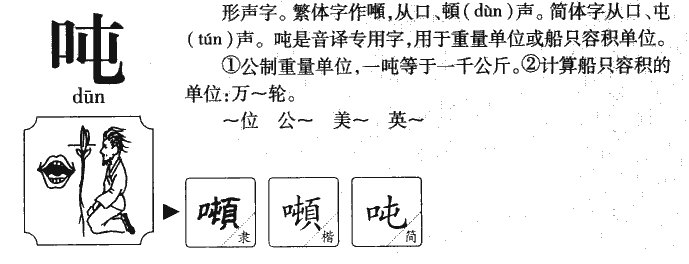 吨
dūn
形声字。繁体字作噸,从口、頓(dùn)声。简体字从口、屯
(tún)声。吨是音译专用字,用于重量单位或船只容积单位。
①公制重量单位,一吨等于一千公斤。②计算船只容积的
单位:万～轮。
～位 公～ 美～ 英～
噸 隶 噸 楷 吨 简